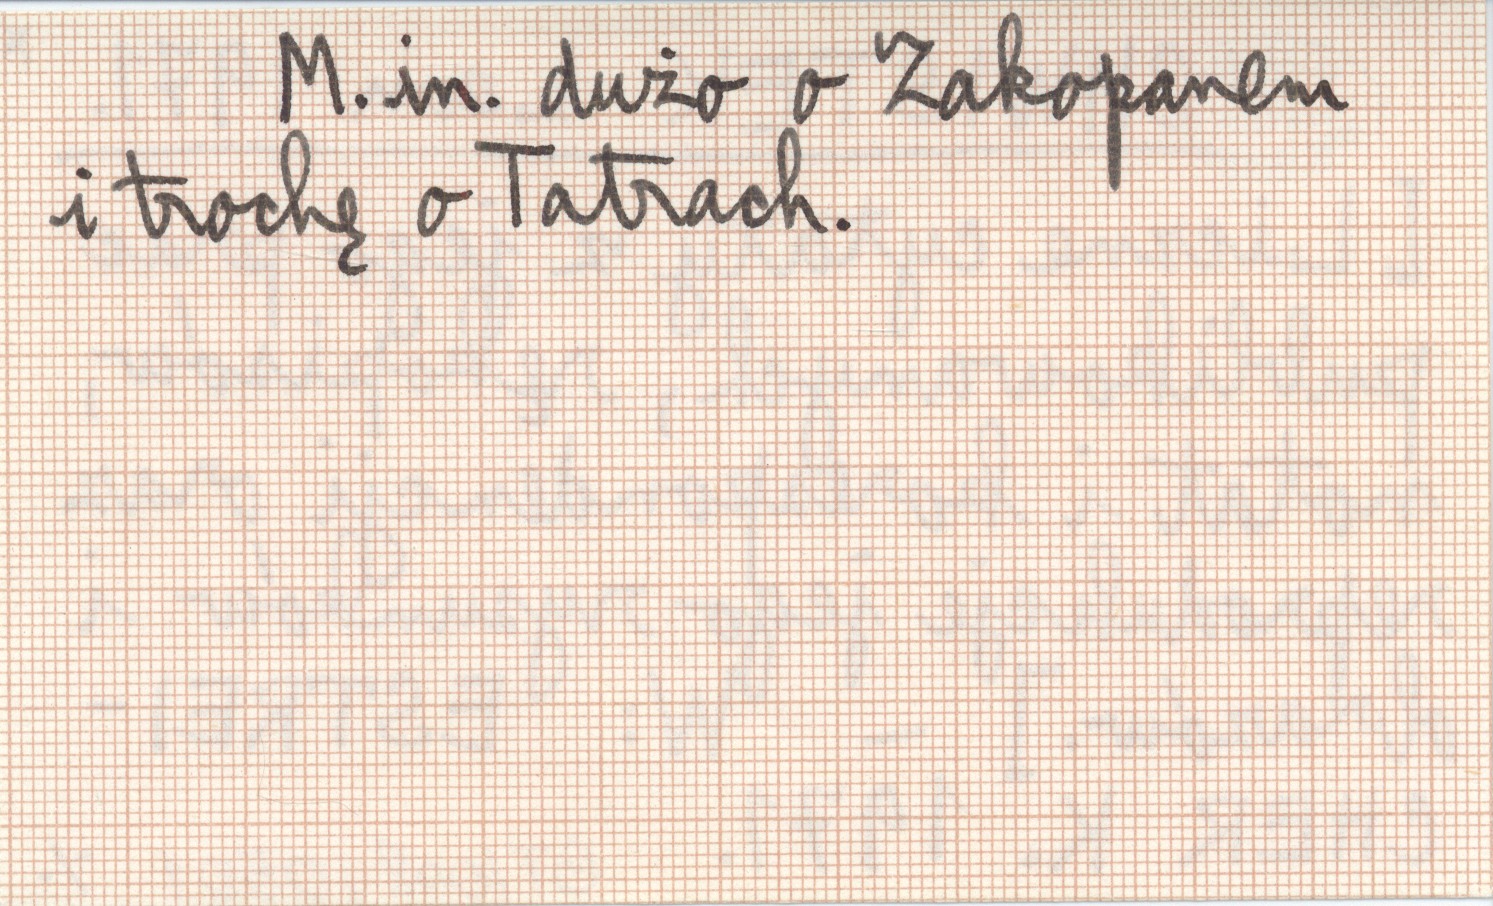 M. in. dużo o Zakopanem
i trochę o Tatrach.